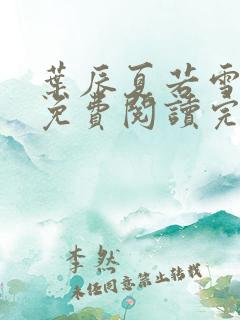 葉辰夏若雪
免費閱讀完
李然
未经同意禁止转载